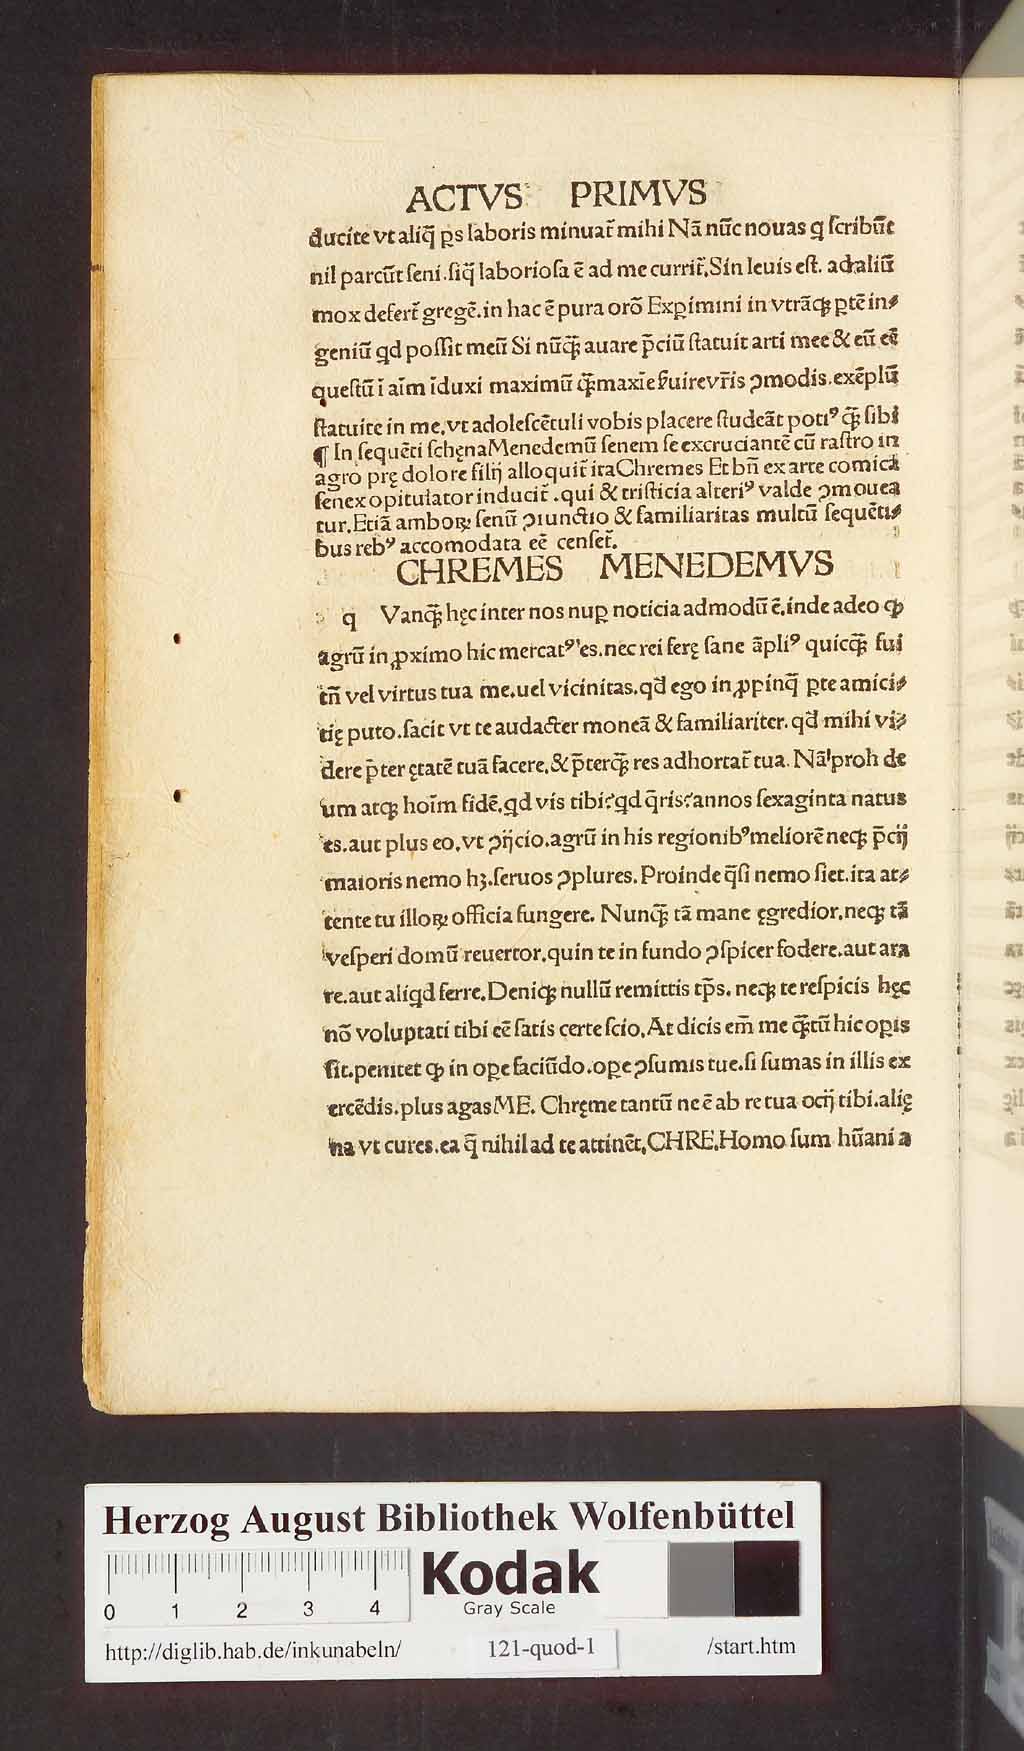 ACTVS PRIMVS
ducite vt aliq̄ ꝑs laboris minuat̄ mihi Nā nūc nouas q ſcribūt
nil parcūt ſeni.ſiq̄ laborioſa ē ad me currit̄.Sin leuis eſt. ad aliū
mox defert̄ gregē.in hac ē pura orō Exꝑimini in vtrāq; ꝑtē in⸗
geniū qd poſſit meū Si nūq̄; auare p̄ciū ſtatuit arti mee & eū eē
queſtū ī aīm īduxi maximū q̄; maxīe ẜuire vr̄is ꝯmodis.exēplū
ſtatuite in me.vt adoleſcētuli vobis placere ſtudeāt potiꝰ q̄; ſibi
¶ In ſequēti ſchęna Menedemū ſenem ſe excruciantē cū raſtro in
agro prę dolore filij alloquit̄ ita Chremes Et bn̄ ex arte comica
ſenex opitulator inducit̄ .qui & triſticia alteriꝰ valde ꝯmouea
tur.Etiā amboꝝ ſenū ꝯiunctio & familiaritas multū ſequēti⸗
bus rebꝰ accomodata eē cenſet̄.
CHREMES MENEDEMVS
q Vanq̄; hęc inter nos nuꝑ noticia admodū ē.inde adeo ꝙ
agrū in ꝓximo hic mercatꝰ es.nec rei ferę ſane āpliꝰ quicq̄; fui
tn̄ vel virtus tua me.uel vicinitas.qd̄ ego in ꝓpinq̄ ꝑte amici⸗
tię puto.facit vt te audacter moneā & familiariter.qd̄ mihi vi⸗
dere p̄ter ętatē tuā facere.& p̄terq̄; res adhortat̄ tua. Nā proh de
um atq; hoīm fidē.qd vis tibi?qd q̄ris?annos ſexaginta natus
es.aut plus eo.vt ꝯijcio.agrū in his regionibꝰ meliorē neq; p̄cij
maioris nemo hꝫ.ſeruos ꝯplures.Proinde q̄ſi nemo ſiet.ita at⸗
tente tu illoꝝ officia fungere. Nunq̄; tā mane ęgredior.neq; tā
veſperi domū reuertor.quin te in fundo ꝯſpicer fodere.aut ara
re.aut aliqd ferre.Deniq; nullū remittis tp̄s. neq; te reſpicis hęc
nō voluptati tibi eē ſatis certe ſcio.At dicis em̄ me q̄;tū hic oꝑis
fit.penitet ꝙ in oꝑe faciūdo.oꝑe ꝯſumis tue.ſi ſumas in illis ex
ercēdis.plus agas ME. Chręme tantū ne ē ab re tua ocij tibi.alię
na vt cures.ea q̄ nihil ad te attinēt.CHRE.Homo ſum hūani a
Herzog August Bibliothek Wolfenbüttel
Kodak
Gray Scale
0 1 2 3 4
http://diglib.hab.de/inkunabeln/ 121-quod-1 /start.htm